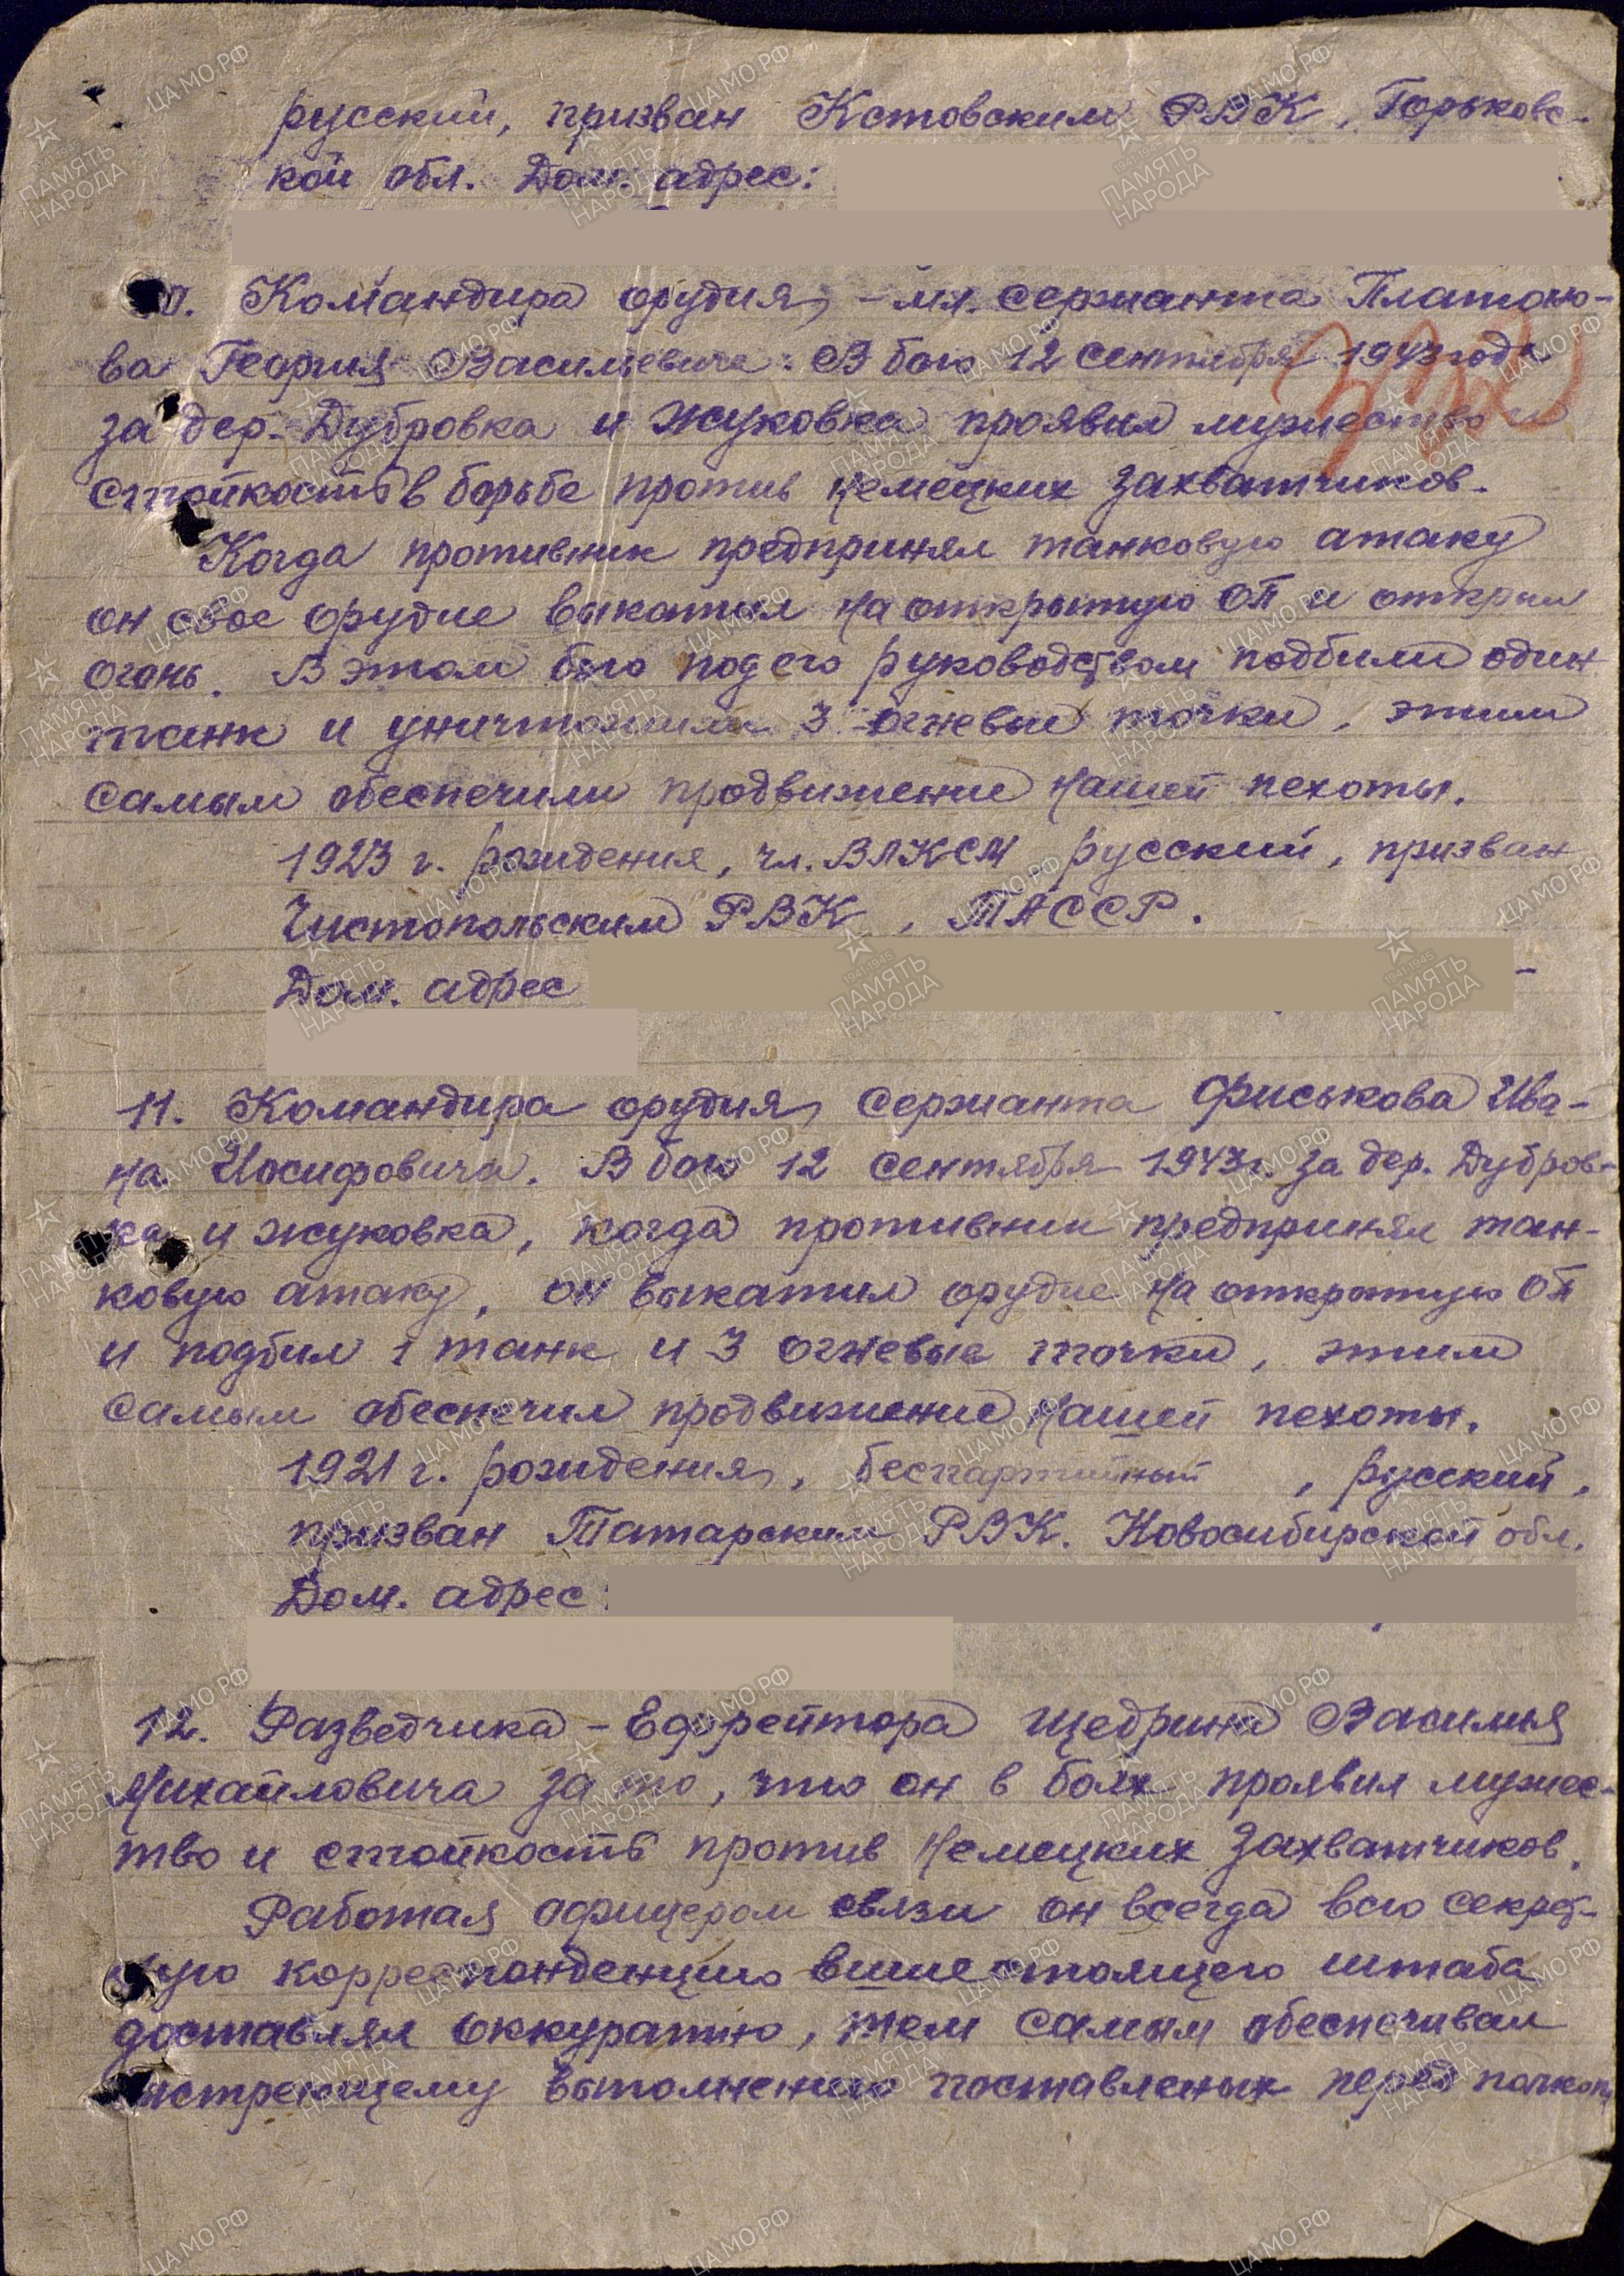 русский, призван Кстовским РВК, Горьковс-
кой обл. Дом. адрес:
0. Командира орудия, - мл. сержанта Платоно-
ва Георгия Васильевича. В бою 12 сентября 1943 года
за дер. Дубровка и Жуковка проявил мужество и
стойкость в борьбе против немецких захватчиков.
Когда противник предпринял танковую атаку
он свое орудие выкатил на открытую ОП и открыл
огонь. В этом бою под его руководством подбили один
танк и уничтожили 3 огневые точки, этим
самым обеспечили продвижение нашей пехоты.
1923 г. рождения, чл. ВЛКСМ русский, призван
Чистопольским РВК, ТАССР.
Дом. адрес
11. Командира орудия, сержанта Фиськова Ива-
на Иосифовича. В бою 12 сентября 1943г. за дер. Дубров-
ка и Жуковка, когда противник предпринял тан-
ковую атаку, он выкатил орудие на открытую ОП
и подбил 1 танк и 3 огневые точки, этим
самым обеспечил продвижение нашей пехоты.
1921 г. рождения, беспартийный, русский,
призван Татарским РВК. Новосибирской обл.
Дом. адрес:
12. Разведчика - Ефрейтора Щедрина Василия
Михайловича за то, что он в боях проявил мужес-
тво и стойкость против немецких захватчиков.
Работая офицером связи он всегда всю секрет-
ную корреспонденцию вышестоящего штаба
доставлял оккуратно, тем самым обеспечивал
быстрейщему выполнению поставленых перед полком